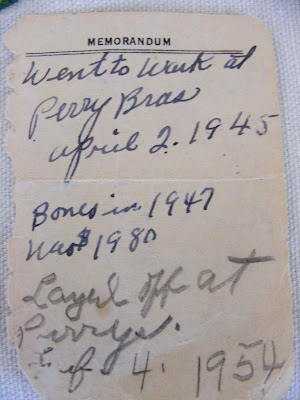 MEMORANDUM
Went to Work at
Perry Bros
april 2. 1945
in 1947
Was $ 1980
Layed off at
Perrys.
4. 1954